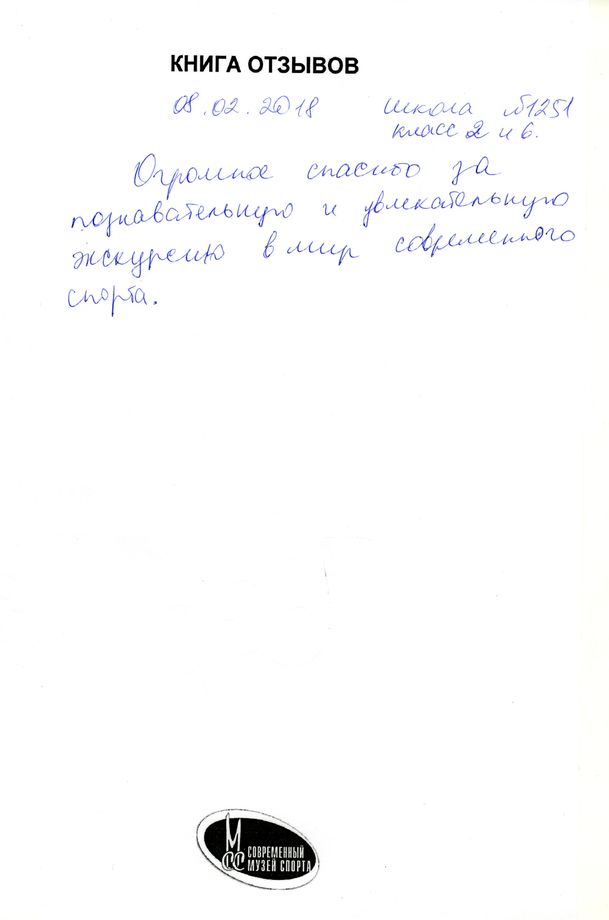 КНИГА ОТЗЫВОВ
08.02.2018 школа №1251
класс 2 и 6.
Огромное спасибо за
познавательную и увлекательную
экскурсию в мир современного
спорта.
М
СС СОВРЕМЕННЫЙ
МУЗЕЙ СПОРТА